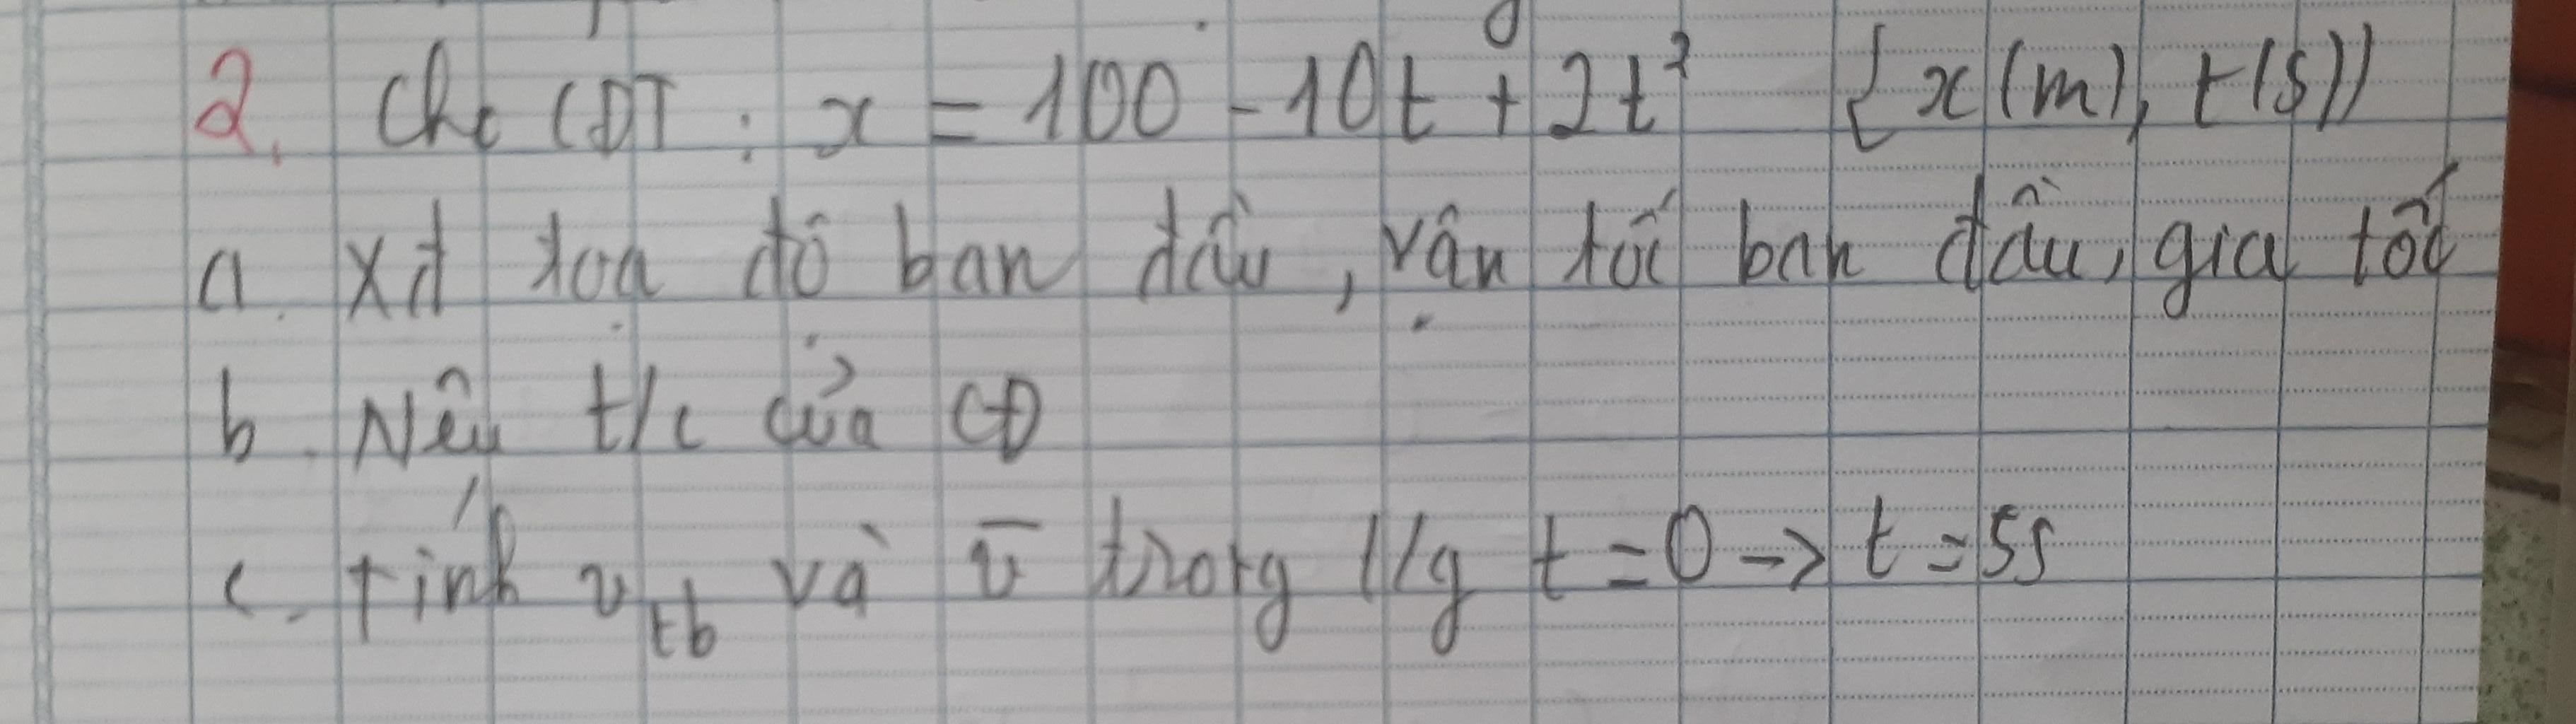 2. Cho CĐT : x = 100 - 10t + 2t² { x (m), t (s))
a. Xđ toạ độ ban đầu, vận tốc ban đầu, gia tốc
b. Nêu t/c của CĐ
c. tính v tb và v̅ trong k/g t = 0 -> t = 5s